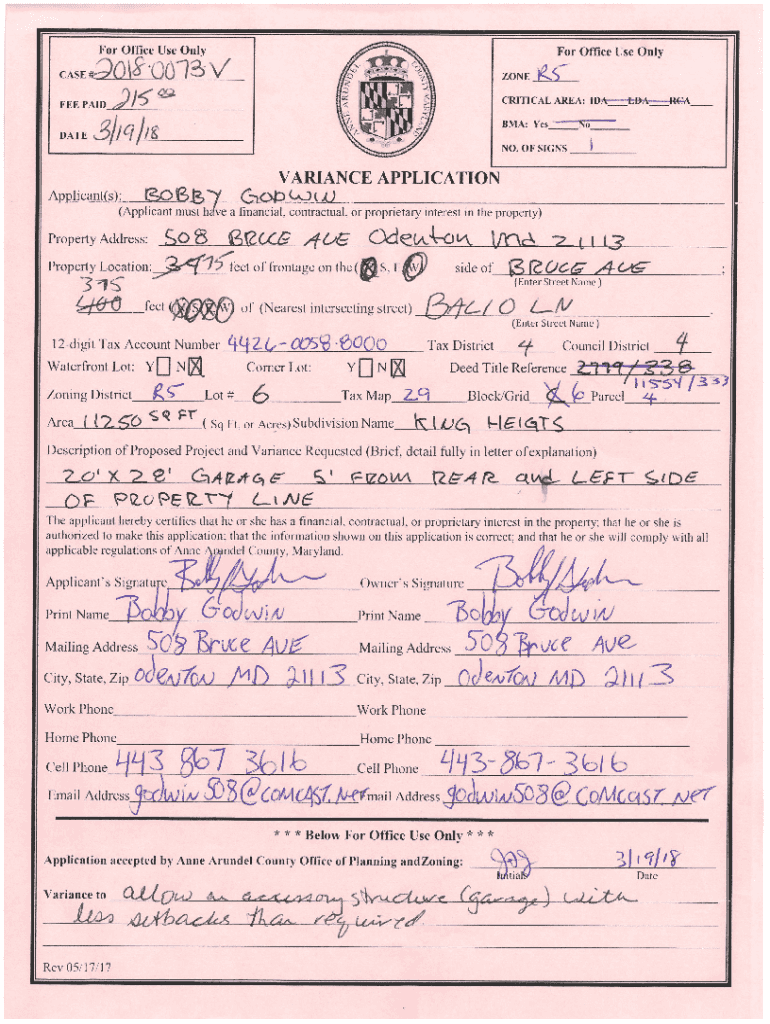 For Office Use Only
CASE # 2018-0073-V
FEE PAID 215 00
DATE 3/19/18
ANNE ARUNDEL COUNTY MARYLAND
For Office Use Only
ZONE R5
CRITICAL AREA: IDA LDA RCA
BMA: Yes No
NO. OF SIGNS 1
VARIANCE APPLICATION
Applicant(s): BOBBY GODWIN
(Applicant must have a financial, contractual, or proprietary interest in the property)
Property Address: 508 BRUCE AVE Odenton Md 21113
Property Location: 75 feet of frontage on the ( S, E, W) side of BRUCE AVE ;
(Enter Street Name)
375
400 feet ( ) of (Nearest intersecting street) BALIO LN .
(Enter Street Name)
12-digit Tax Account Number 4426-0058-8000 Tax District 4 Council District 4
Waterfront Lot: Y N X Corner Lot: Y N X Deed Title Reference 2779/338
11554/333
Zoning District R5 Lot # 6 Tax Map 29 Block/Grid 6 Parcel 4
Area 11250 SQ FT (Sq Ft. or Acres) Subdivision Name KING HEIGTS
Description of Proposed Project and Variance Requested (Brief, detail fully in letter of explanation)
20' X 28' GARAGE 5' FROM REAR and LEFT SIDE
OF PROPERTY LINE
The applicant hereby certifies that he or she has a financial, contractual, or proprietary interest in the property; that he or she is
authorized to make this application; that the information shown on this application is correct; and that he or she will comply with all
applicable regulations of Anne Arundel County, Maryland.
Applicant's Signature Owner's Signature
Print Name Bobby Godwin Print Name Bobby Godwin
Mailing Address 508 Bruce AVE Mailing Address 508 Bruce Ave
City, State, Zip OdeNTON MD 21113 City, State, Zip OdeNTON MD 21113
Work Phone Work Phone
Home Phone Home Phone
Cell Phone 443 867 3616 Cell Phone 443-867-3616
Email Address godwin508@COMCAST.Net Email Address godwin508@COMCAST.NET
* * * Below For Office Use Only * * *
Application accepted by Anne Arundel County Office of Planning and Zoning: 3/19/18
Initials Date
Variance to allow an accessory structure (garage) with
less setbacks than required.
Rev 05/17/17